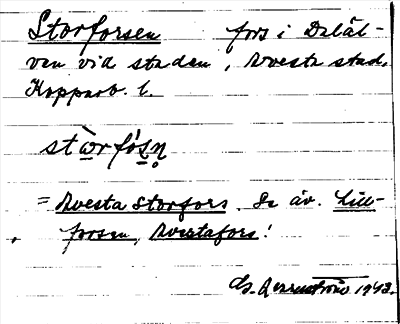 Storforsen fors i Daläl-
ven vid staden, Avesta stad,
Kopparb. l.
stòrfósn
= Avesta Storfors. Se äv. Lill-
forsen, Avestafors!
1943.